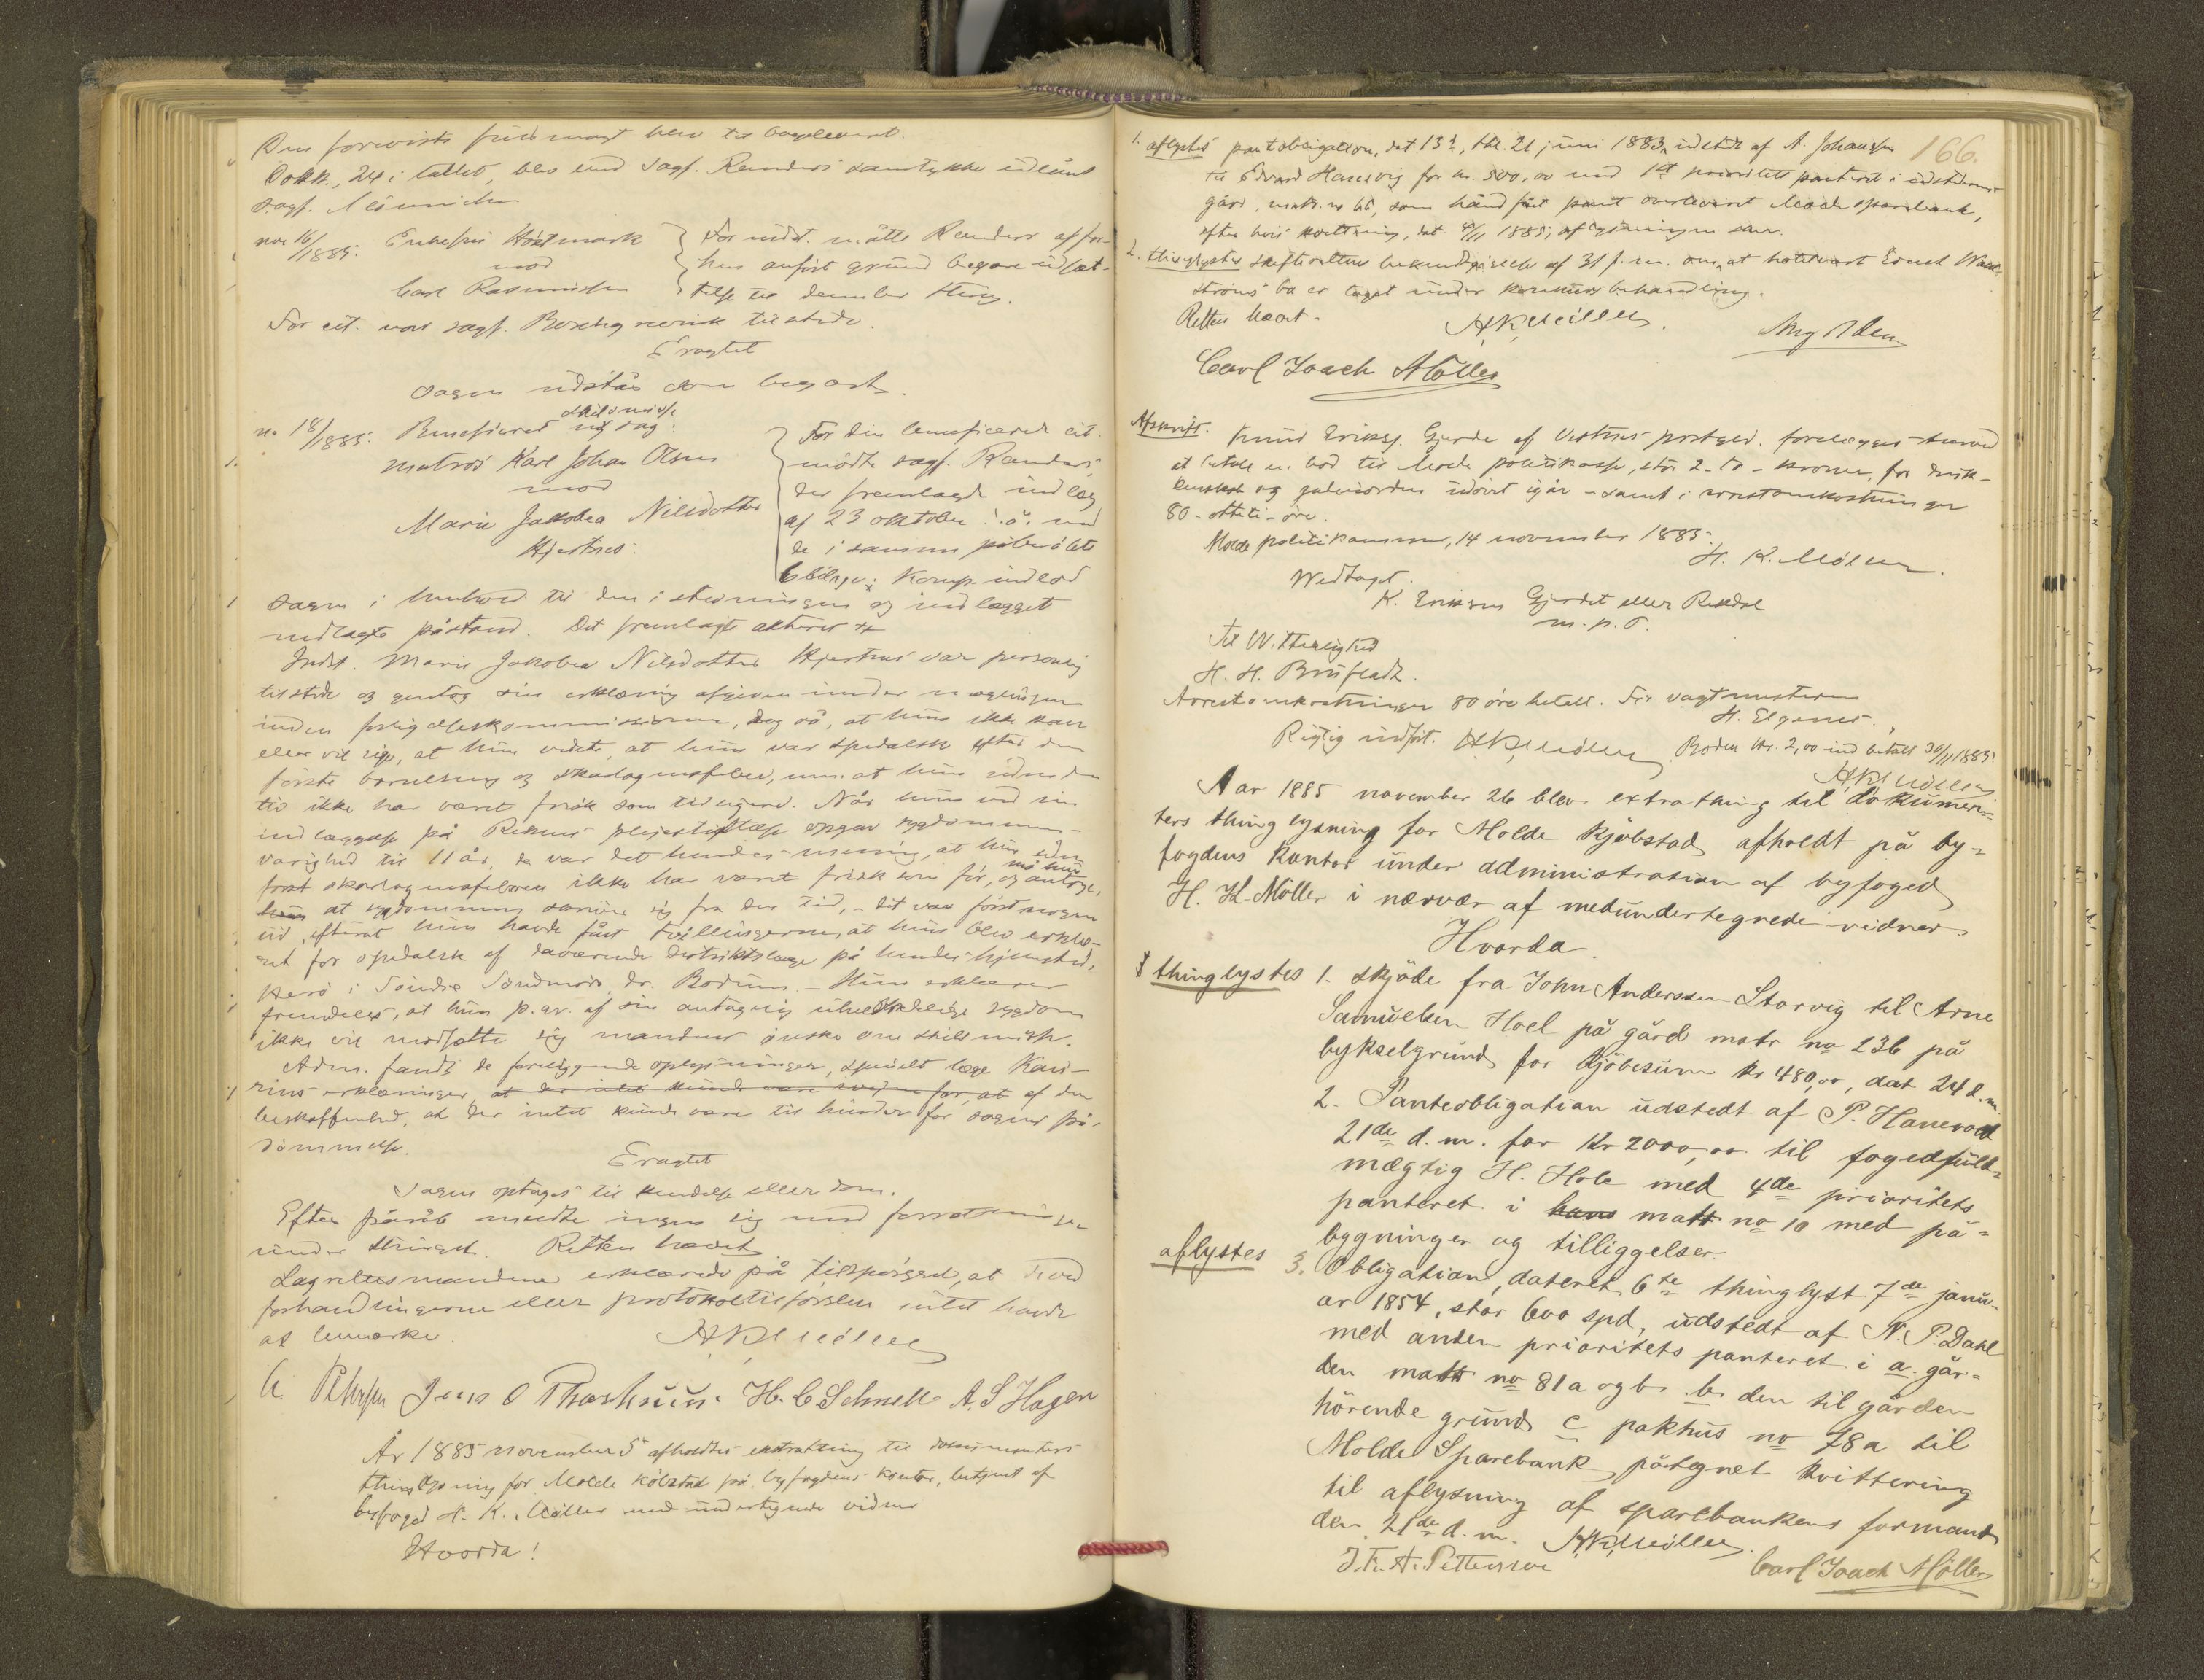 Den foreviste fuldmagt blev tilbageleveret.
Dokk., 24 i tallet, blev med sagf. Randers samtykke udlånt
sagf. Mönnichen
no. 16/1885. Enkefru Höstmark
mod
Carl Rasmussen
For indst. mötte Randers af for-
hen anfört grund begjære udsæt-
telse til december thing.
For cit. var sagf. tilstede.
Eragtet
Sagen udståer som begjært.
no 18/1885. Beneficeret skilsmisse sag:
matros Karl Johan Olsen
mod
Marie Jakobea Nilsdotter
Hjertnes.
For den beneficerede cit.
mödte sagf. Randers,
der fremlagde indlæg
af 23 oktober d. å. med
de i samme påberåbte
bilage; Komp. indlod
sagen i henhold til den i stevningen og indlægget
nedlagte påstand. Det fremlagte akteres
Indst. Marie Jakobea Nilsdotter Hjertnes var personlig
tilstede og gentog sin erklæring afgiven under mæglingen
inden forligelseskommissionen, dog så, at hun ikke kan
eller vil sige, at hun vidste, at hun var spedalsk efter den
förste barnelseng og skarlagensfeber, men at hun siden den
tid ikke har været frisk som tidligere. Når hun ved sin
indlæggelse på Reknes plejestiftelse opgav sygdommens
varighed til 11 år, da var det hendes mening, at hun siden
först skarlagensfeberen ikke har været frisk som för, og må hun antage,
at sygdommen skriver sig fra den tid, - det var först nogen
tid, efterat hun havde fået tvillingerne, at hun blev erklæ-
ret for spedalsk af daværende distriktslæge på hendes hjemsted,
Herö i Söndre Söndmöre, dr. - Hun erklærer
fremdeles, at hun p. gr. af sin antagelig uhelbredelige sygdom
ikke vil modsætte sig mandens önske om skilsmisse.
Adm. fandt de foreliggende oplysninger, specielt læge Kau-
rins erklæringer, at der intet kunde være iveien for, at af den
beskaffenhed, at der intet kunde være til hinder for sagens på-
dömmelse.
Eragtet
Sagen optages til kendelse eller dom.
Efter påråb meldte ingen sig med forretninger
under thinget. Retten hævet
Lagrettesmændene erklærede på tilspörgsel, at ved
forhandlingerne eller protokoltilförslen intet havde
at bemærke. H. K. Möller
Petersen Jens O H. C. Schnell A. S Hagen
År 1885 november 5 afholdtes extrathing til dokumenters
thinglysning for Molde Köbstad på byfogdens kontor, betjent af
byfoged H. K. Möller med undertegnede vidner
Hvorda!
166.
1. aflystes pantobligation, dat. 13d, thl. 21 juni 1883, udstedt af A. Johansen
til Edvard Hanevig for kr. 500,00 med 1st prioritets panteret i udstederens
gård, matr. no 65, som håndfået pant overleveret Molde sparebank,
efter hvis kvittering, dat. 4/11 1885, aflysningen sker.
2. thinglystes skifterettens bekendtgjörelse af 31 f. m. om, at
ströms bo er taget under konkursbehandling.
Retten hævet. H. K. Möller.
Carl Joach Möller
Afskrift. Knud Eriksen Gjerde af Vestnes prestgeld. forelægges herved
at betale en bod til Molde politikasse, stor 2 - to - kroner, for drik-
kenskab og gadeuorden udövet igår - samt i arrestomkostninger
80 - otteti - öre.
Molde politikammer, 14 november 1885.
H. K. Möller.
Vedtaget.
K. Eriksen Gjerdet eller Rekdal
m. p. P.
Til Vitterlighed
H. H. Brüfladt.
Arrestomkostninger 80 öre betalt. For vagtmesteren
H. Elgenes.
Rigtig indfört. H. K. Möller Boden Kr. 2,00 indbetalt 30/11 1885.
H. K. Möller
Aar 1885 november 26 blev extrathing til dokumen-
ters thinglysning for Molde Kjöbstad afholdt på by-
fogdens kontor under administration af byfoged
H. K. Möller i nærvær af medundertegnede vidner
Hvorda
thinglystes 1. skjöde fra John Anderssen Storvig til Arne
Samuelsen Hoel på gård matr no 236 på
bykselgrund for Kjöbesum kr 480,00, dat 24 d. m.
2. Panteobligation udstedt af P. Hanevold
21de d. m. for Kr 2000,00 til fogedfuld-
mægtig H. Hole med 4de prioritets
panteret i hans matr no 10 med på-
bygninger og tilliggelser.
aflystes 3. Obligation, dateret 6te thinglyst 7de janu-
ar 1854, stor 600 spd, udstedt af N. P. Dahl
med anden prioritets panteret i a. går-
den matr no 81a og b. b. den til gården
hörende grund c pakhus no 78a til
Molde Sparebank påtegnet kvittering
til aflysning af sparebankens formand
den 21de d. m. H. K. Möller.
J. F. A. Pettersen Carl Joach Möller